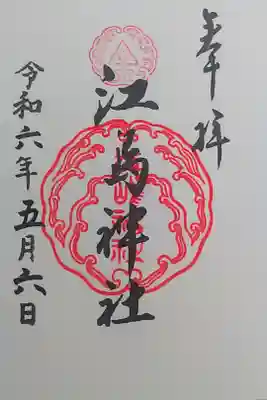 奉拝
江島神社
令和六年五月六日